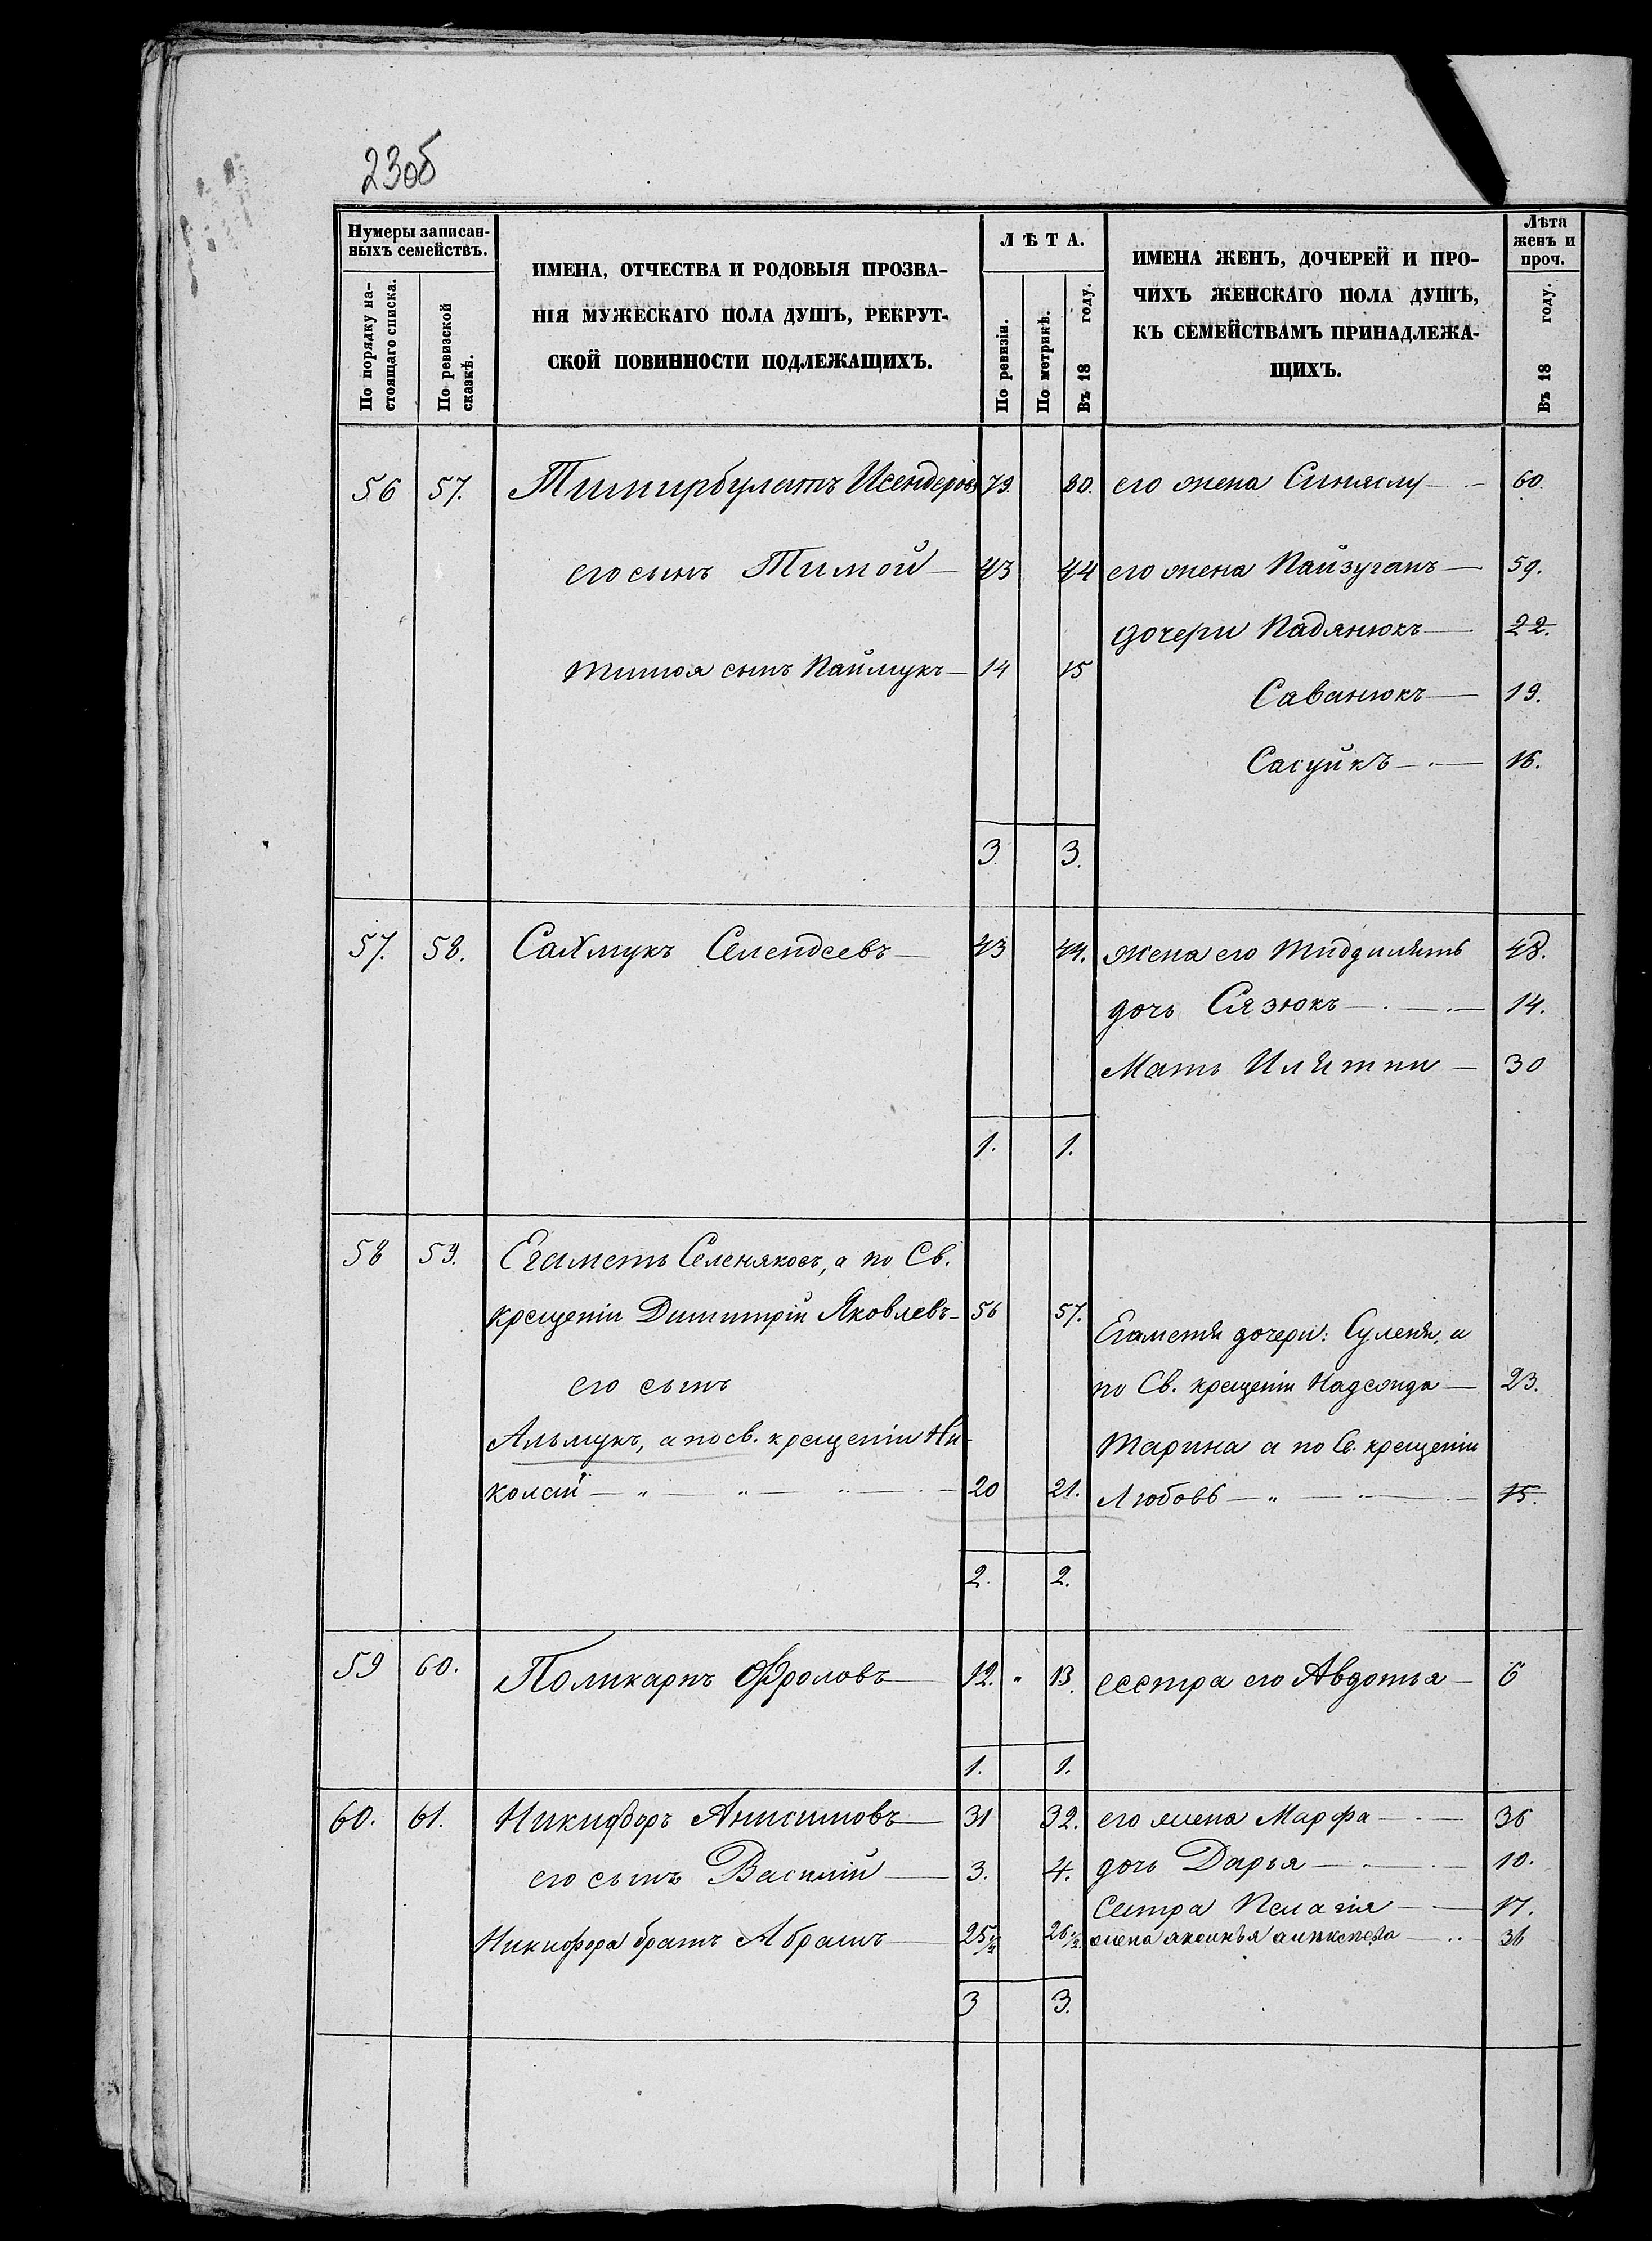 23об
Нумеры записан-
ныхъ семействъ.
По порядку на-
стоящаго списка.
По ревизской
сказкѣ.
ИМЕНА, ОТЧЕСТВА И РОДОВЫЯ ПРОЗВА-
НІЯ МУЖЕСКАГО ПОЛА ДУШЪ, РЕКРУТ-
СКОЙ ПОВИННОСТИ ПОДЛЕЖАЩИХЪ.
ЛѢТА.
По ревизіи.
По метрикѣ.
Въ 18 году.
ИМЕНА ЖЕНЪ, ДОЧЕРЕЙ И ПРО-
ЧИХЪ ЖЕНСКАГО ПОЛА ДУШЪ,
КЪ СЕМЕЙСТВАМЪ ПРИНАДЛЕЖА-
ЩИХЪ.
Лѣта
женъ и
проч.
Въ 18 году.
56 57. Тимирбулатъ Исендеровъ 79. 80. его жена Синяслу — 60.
его сынъ Тимой — 43 44 его жена Пайзуганъ — 59.
дочери Падянюкъ — 22.
Тимоя сынъ Паймукъ — 14 15
Саванюкъ — 19.
Сасуйкъ — 16.
3. 3.
57. 58. Сахмукъ Селендеевъ — 43 44. жена его 48.
дочь Сязюкъ — 14.
Мать — 30
1. 1.
58 59. Егаметь Селеняковъ, а по Св.
крещеніи Димитрій Яковлевъ — 56 57.
Егаметя дочери: Суленя, а
его сынъ по Св. крещеніи Надежда — 23.
Альмукъ, а по св. крещеніи Ни- Тарина а по Св. крещеніи
колай — " — " — " — 20 21. Любовь — " — 15.
2. 2.
59 60. Поликарпъ Фроловъ — 12. " 13. сестра его Авдотья — 6
1. 1.
60. 61. Никифоръ Анисимовъ — 31 32. его жена Марфа — 36
его сынъ Василій — 3. 4. дочь Дарья — 10.
Сестра Пелагія — 17.
Никифора братъ Абрамъ — 25 1/2 26 1/2. жена — 36
3 3.